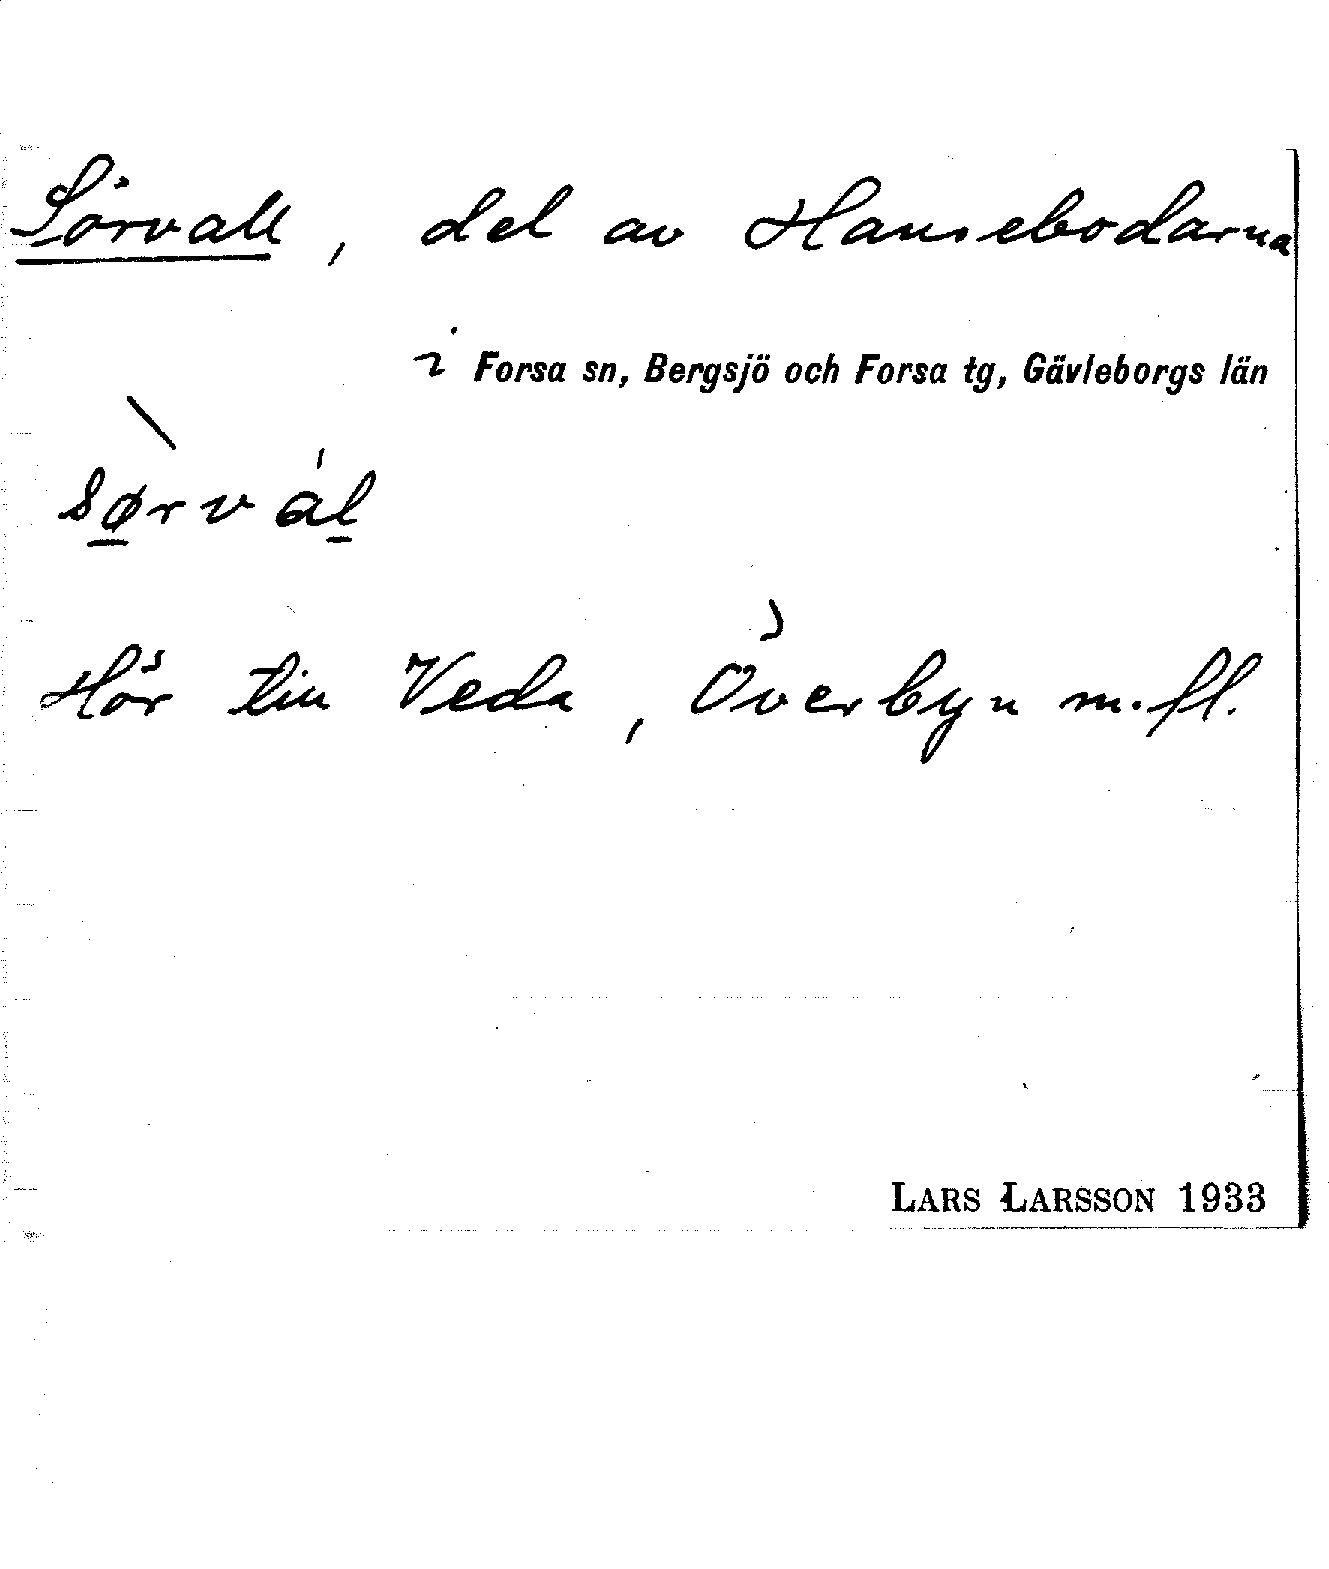 Sörvall, del av Hansebodarna
i Forsa sn, Bergsjö och Forsa tg, Gävleborgs län
sørval
Hör till Veda, Överbyn m.fl.
LARS LARSSON 1933